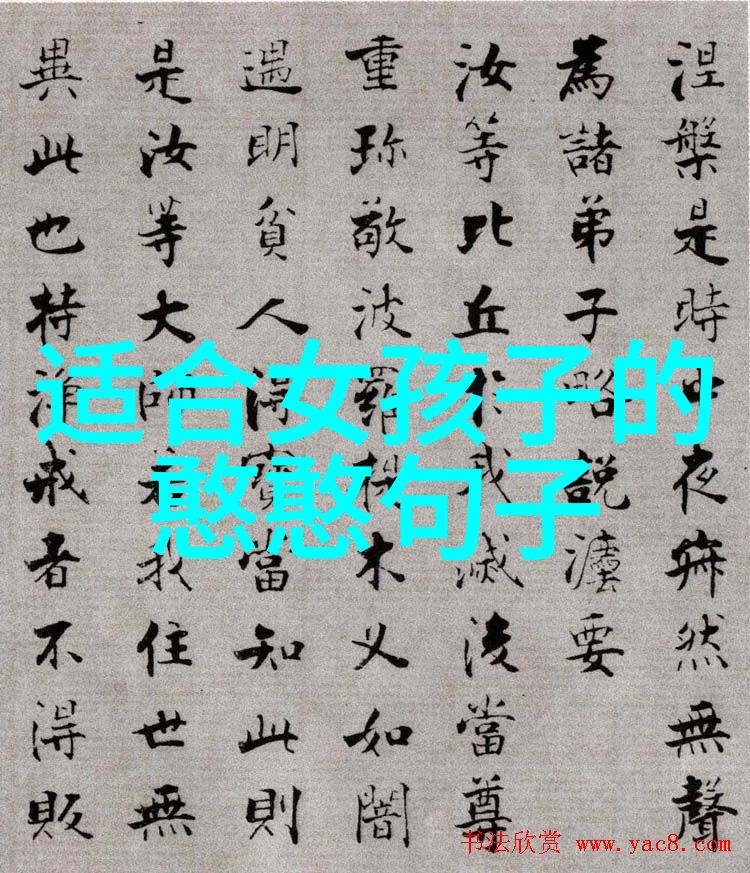 涅槃是時中夜寂然無聲
為諸弟子略說法要
汝等比丘於我滅後當尊
重珎敬波羅提木叉如闇
遇明貧人得寶當知此則
是汝等大師若我住世無
異此也持淨戒者不得販
适合女孩子的
憨憨句子
书法欣赏 www.yac8.com